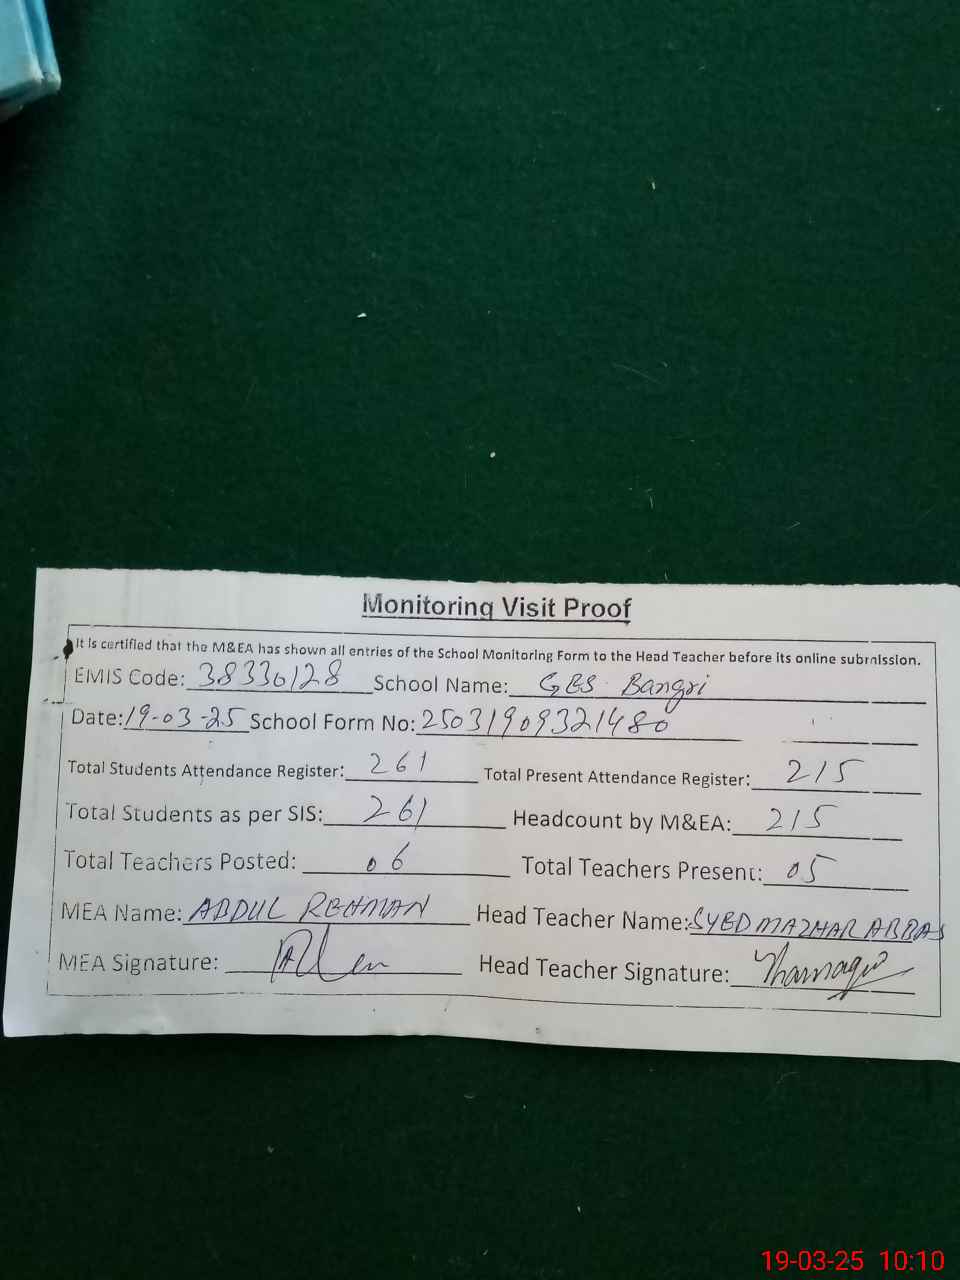 Monitoring Visit Proof
It is certified that the M&EA has shown all entries of the School Monitoring Form to the Head Teacher before its online submission.
EMIS Code: 38330128 School Name: GES Bangri
Date: 19-03-25 School Form No: 25031909321480
Total Students Attendance Register: 261 Total Present Attendance Register: 215
Total Students as per SIS: 261 Headcount by M&EA: 215
Total Teachers Posted: 06 Total Teachers Present: 05
MEA Name: ABDUL REHMAN Head Teacher Name: SYED MAZHAR ABBAS
MEA Signature: Head Teacher Signature:
19-03-25 10:10